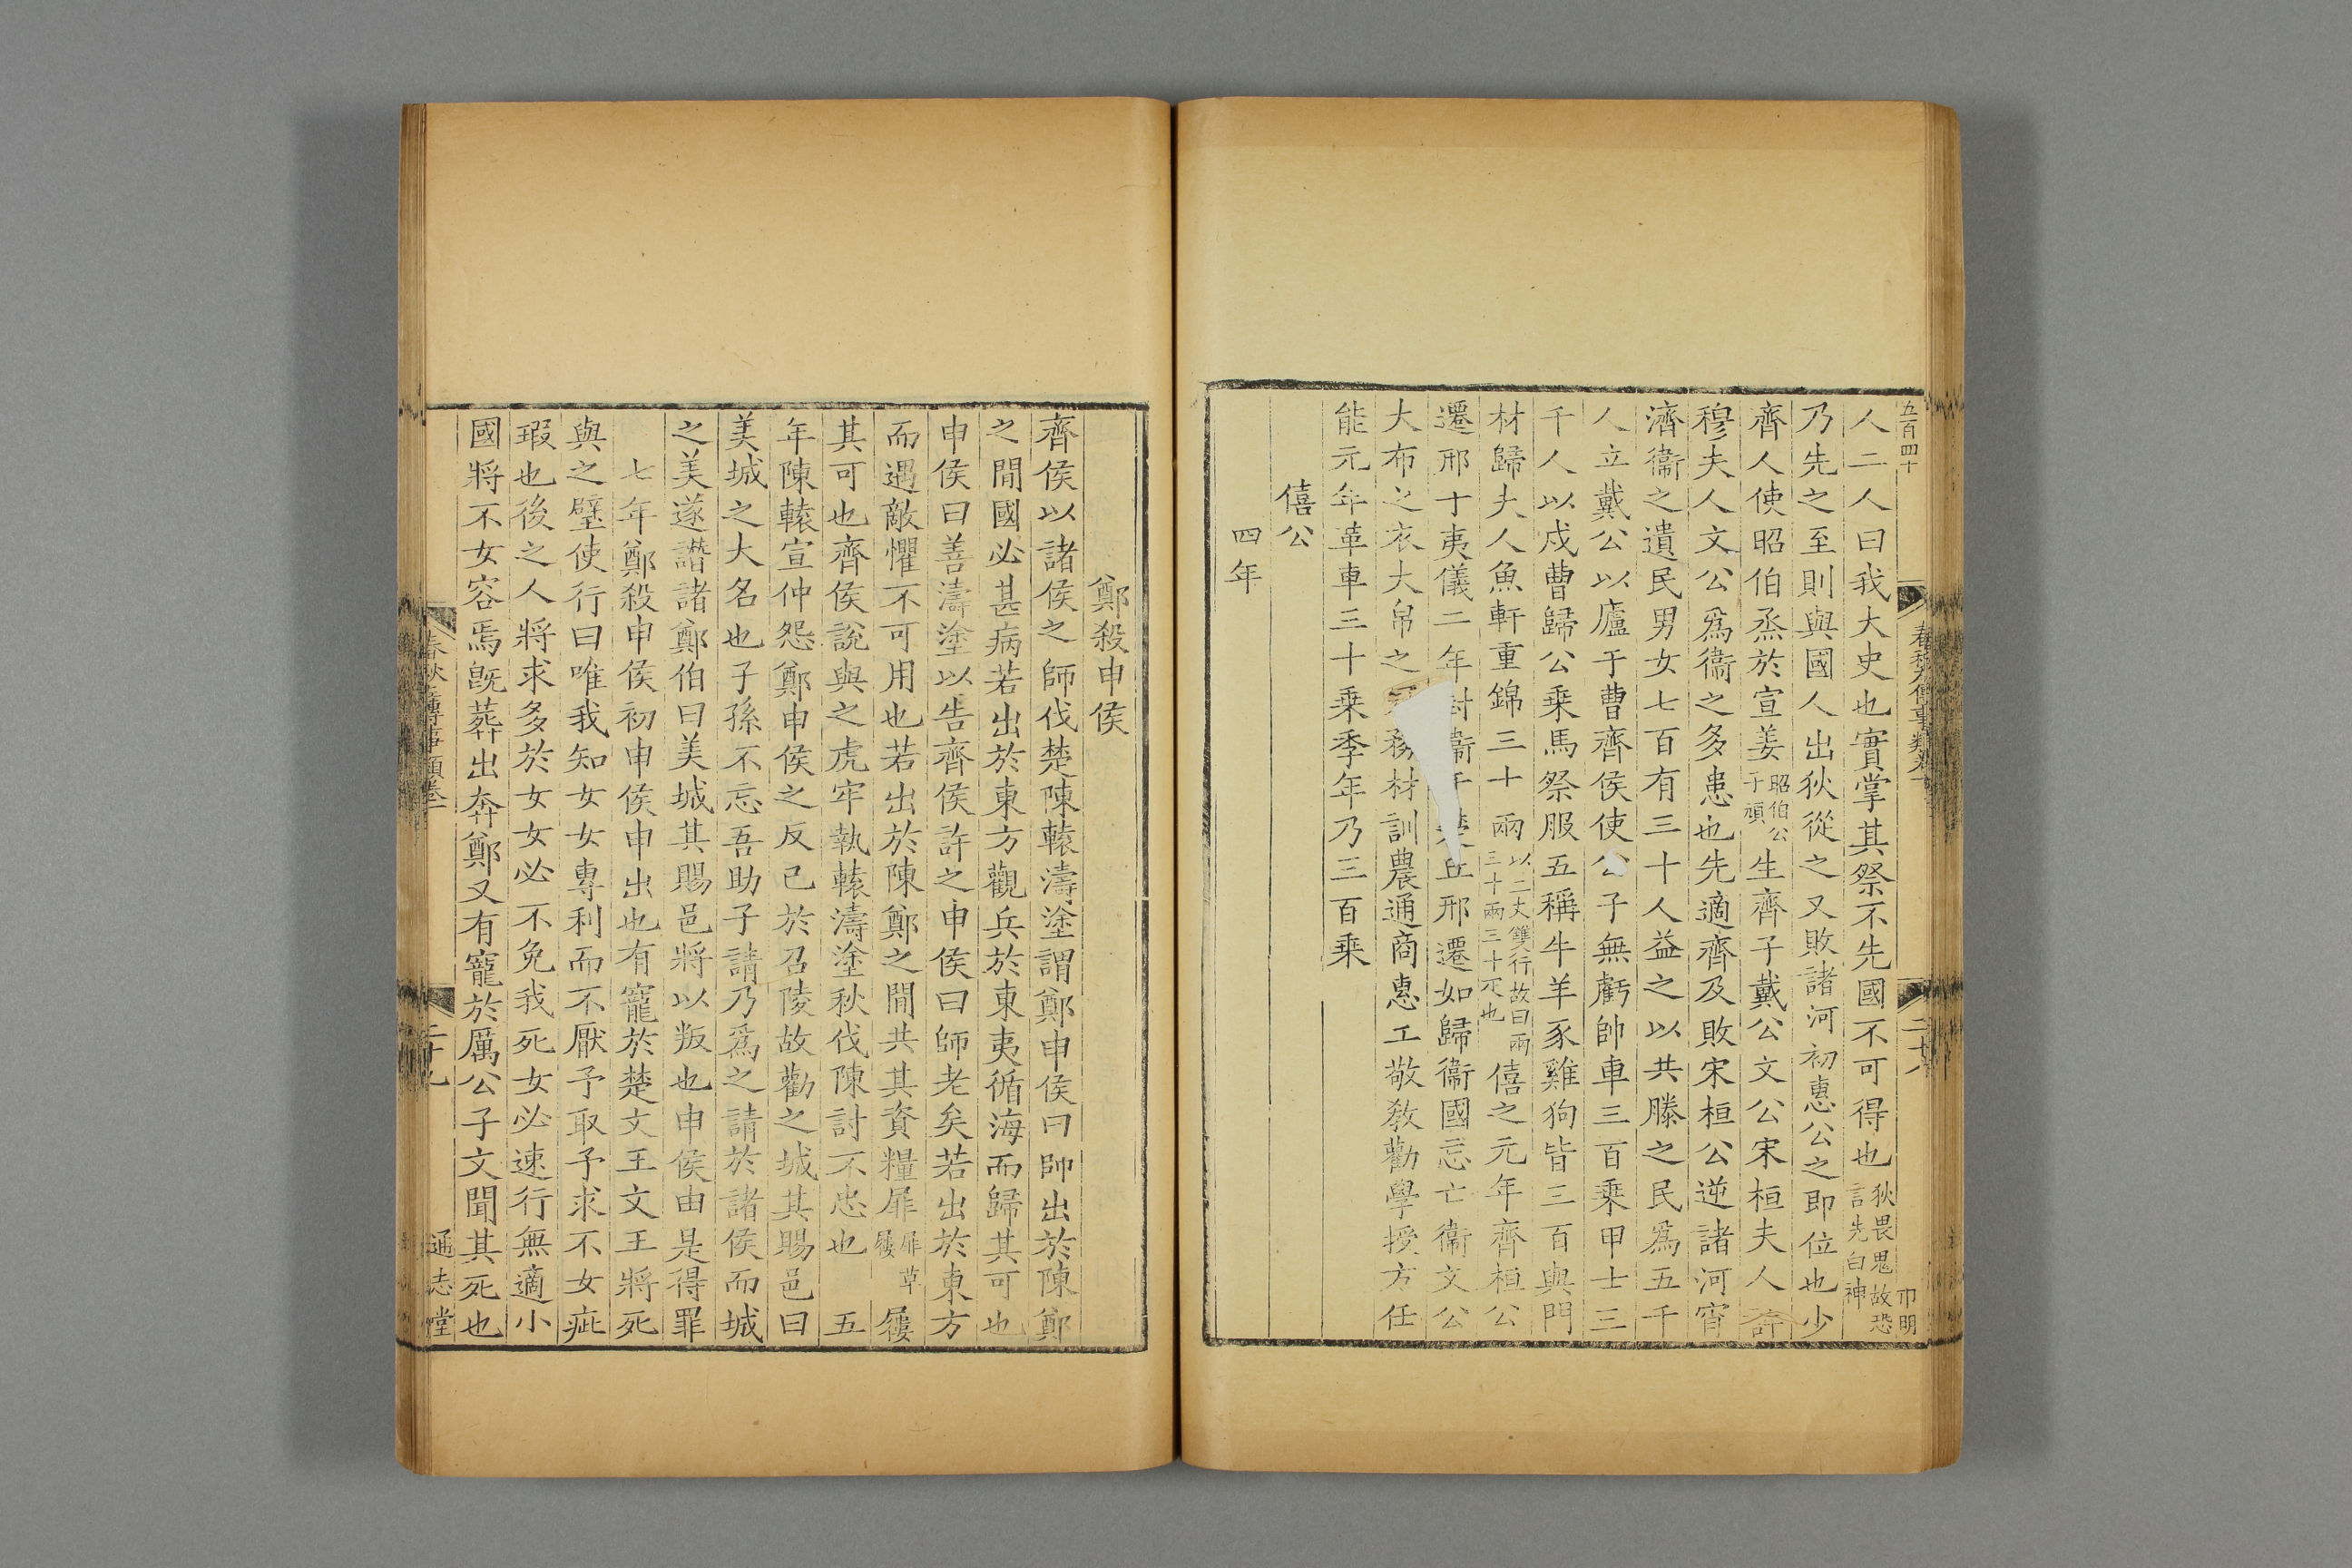 五百四十
人二人曰我大史也實掌其祭不先國不可得也狄畏鬼故恐言先白神
乃先之至則與國人出狄從之又敗諸河初惠公之即位也少
齊人使昭伯烝於宣姜昭伯公子頑生齊子戴公文公宋桓夫人許
穆夫人文公爲衞之多患也先適齊及敗宋桓公逆諸河宵
濟衞之遺民男女七百有三十人益之以共滕之民爲五千
人立戴公以廬于曹齊侯使公子無虧帥車三百乘甲士三
千人以戍曹歸公乘馬祭服五稱牛羊豕雞狗皆三百與門
材歸夫人魚軒重錦三十兩以二丈雙行故曰兩三十兩三十疋也僖之元年齊桓公
遷邢于夷儀二年封衞于楚丘邢遷如歸衞國忘亡衞文公
大布之衣大帛之務材訓農通商惠工敬敎勸學授方任
能元年革車三十乘季年乃三百乘
僖公
四年
鄭殺申侯
齊侯以諸侯之師伐楚陳轅濤塗謂鄭申侯曰師出於陳鄭
之間國必甚病若出於東方觀兵於東夷循海而歸其可也
申侯曰善濤塗以告齊侯許之申侯曰師老矣若出於東方
而遇敵懼不可用也若出於陳鄭之間共其資糧屝屝草屨屨
其可也齊侯說與之虎牢執轅濤塗秋伐陳討不忠也五
年陳轅宣仲怨鄭申侯之反己於召陵故勸之城其賜邑曰
美城之大名也子孫不忘吾助子請乃爲之請於諸侯而城
之美遂譖諸鄭伯曰美城其賜邑將以叛也申侯由是得罪
七年鄭殺申侯初申侯申出也有寵於楚文王文王將死
與之璧使行曰唯我知女女專利而不厭予取予求不女疵
瑕也後之人將求多於女女必不免我死女必速行無適小
國將不女容焉旣葬出奔鄭又有寵於厲公子文聞其死也
通志堂